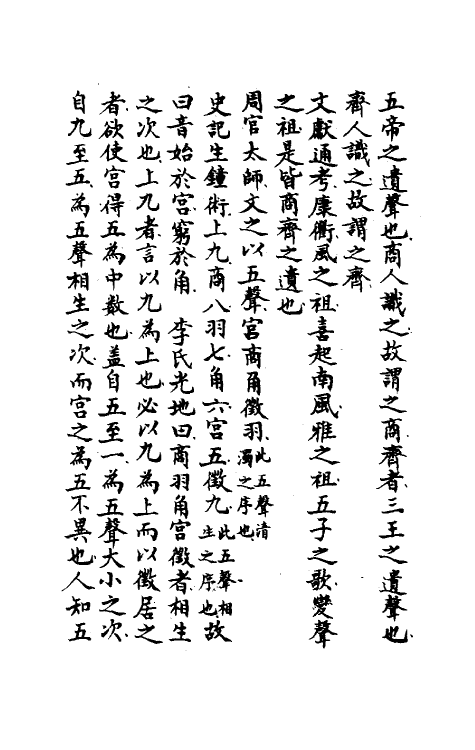 五帝之遺聲也商人識之故謂之商齊者三王之遺聲也
齊人識之故謂之齊
文獻通考康衢風之祖喜起南風雅之祖五子之歌變聲
之祖是皆商齊之遺也
周官太師文之以五聲宮商角徵羽此五聲清濁之序也
史記生鐘術上九商八羽七角六宮五徵九此五聲相生之序也故
曰音始於宮窮於角 李氏光地曰商羽角宮徵者相生
之次也上九者言以九為上也必以九為上而以徵居之
者欲使宮得五為中数也盖自五至一為五聲大小之次
自九至五為五聲相生之次而宮之為五不異也人知五